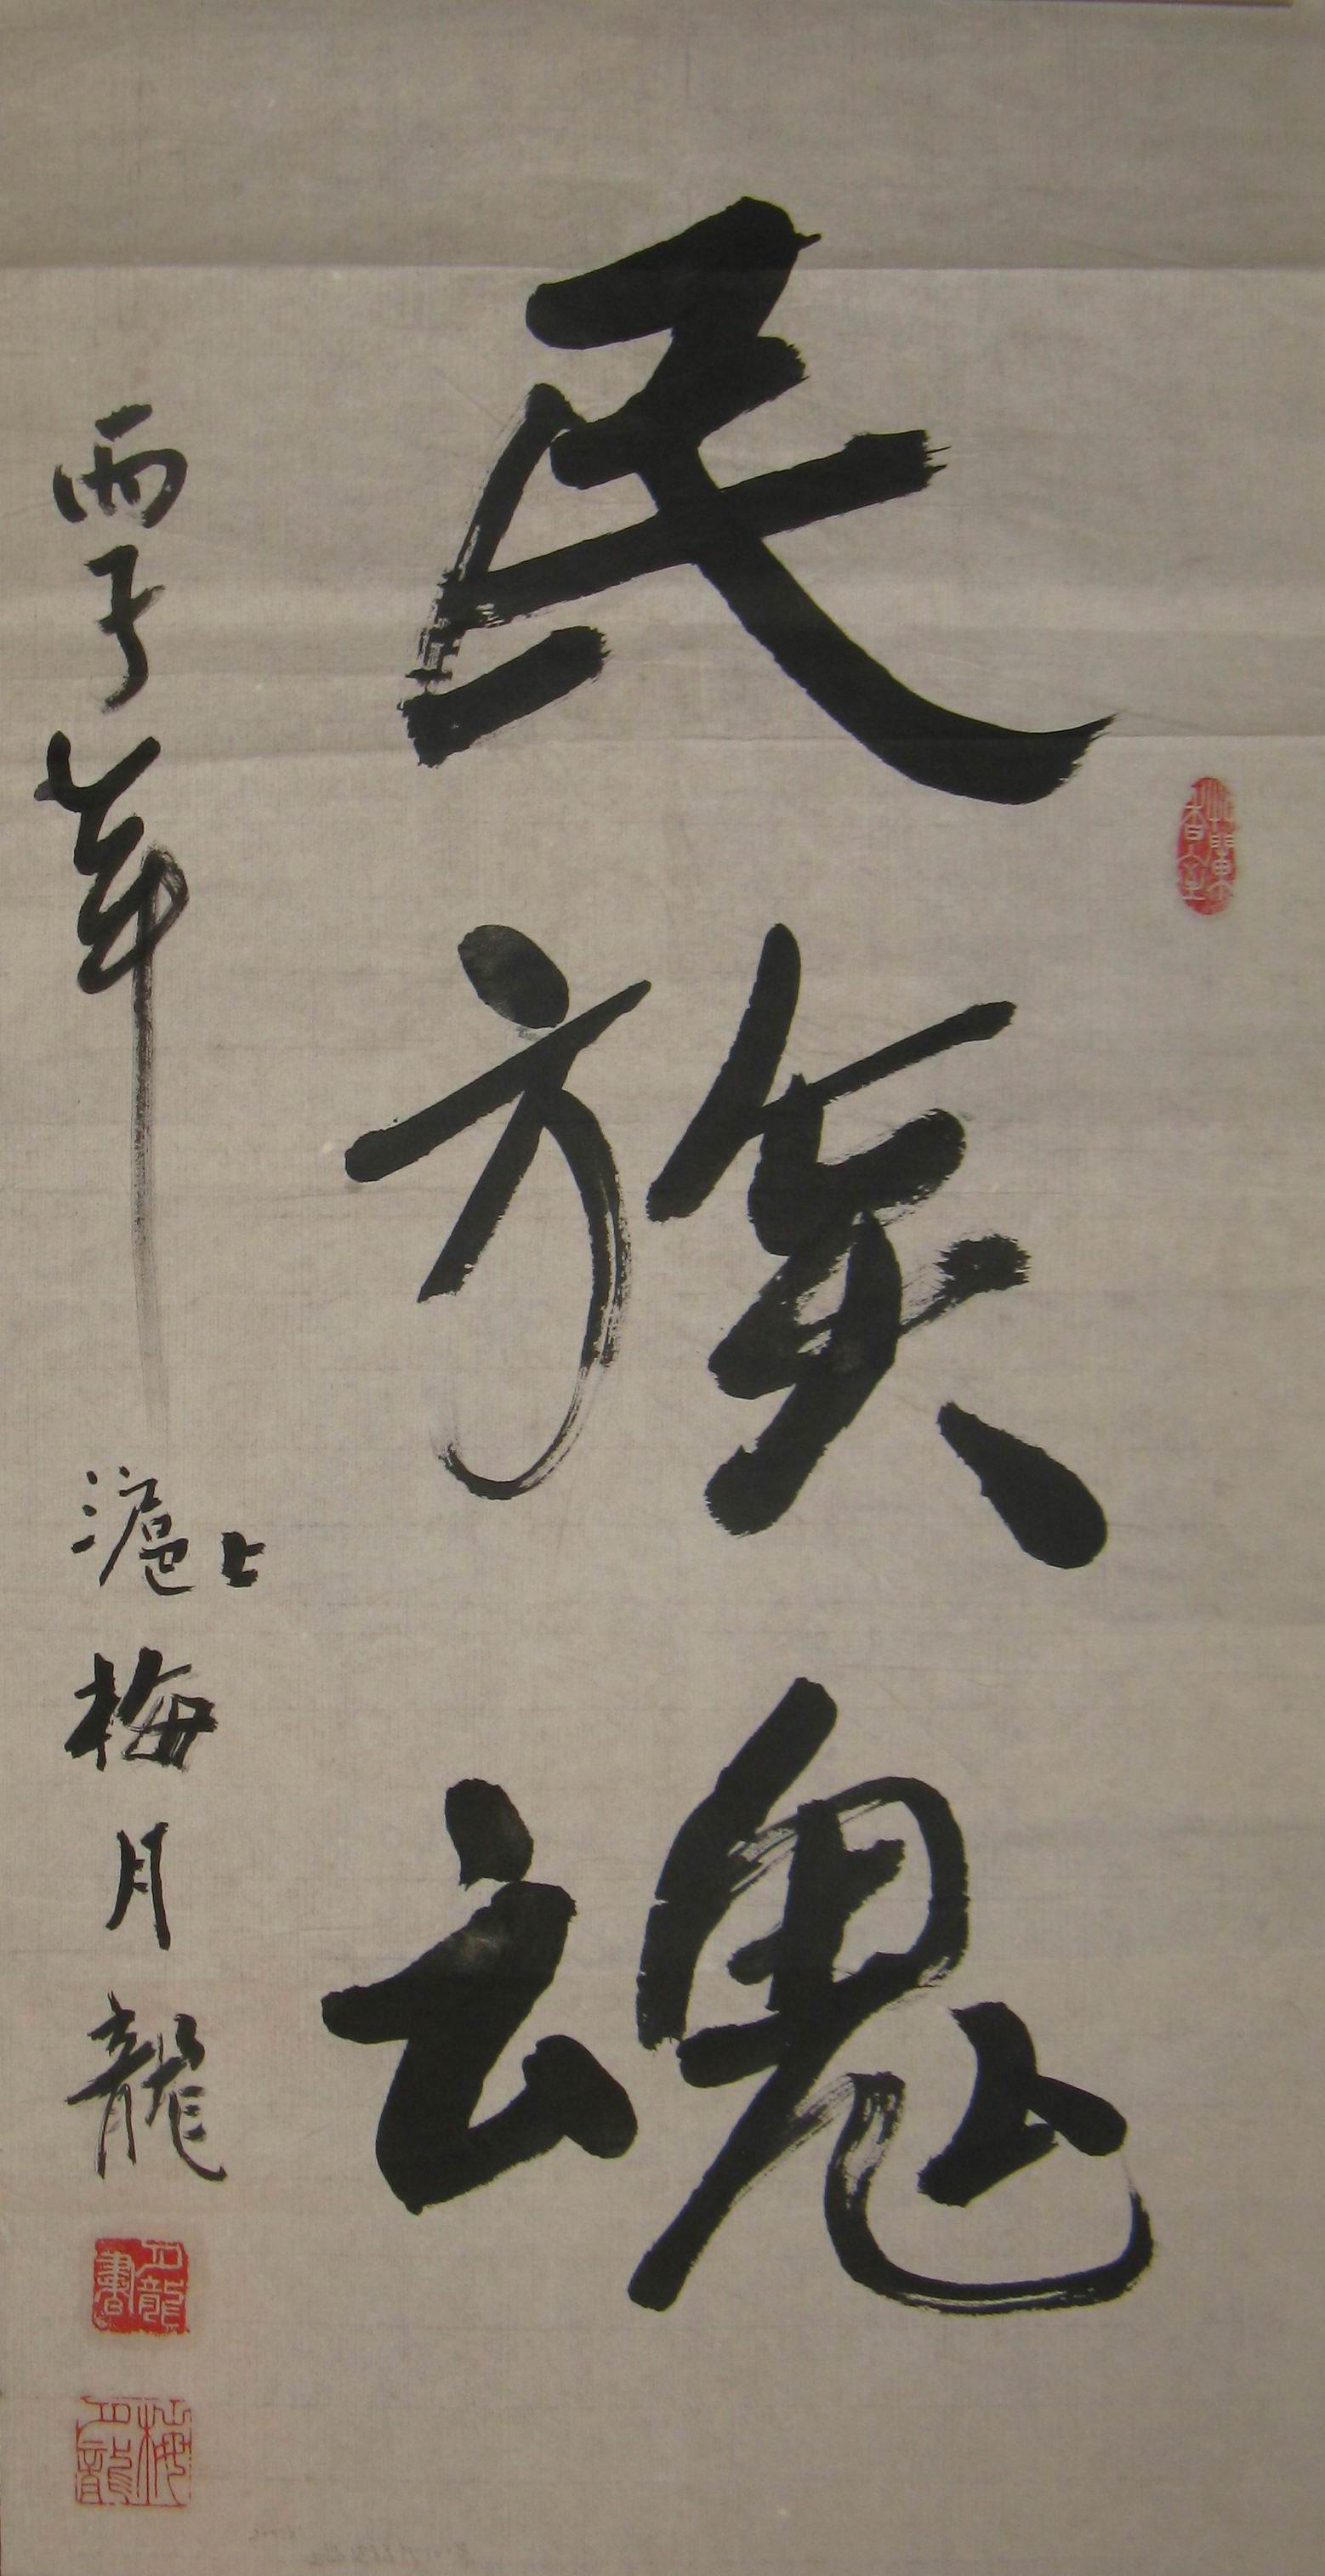 民族魂
丙子年 滬上梅月龍
月龍書
梅月龍